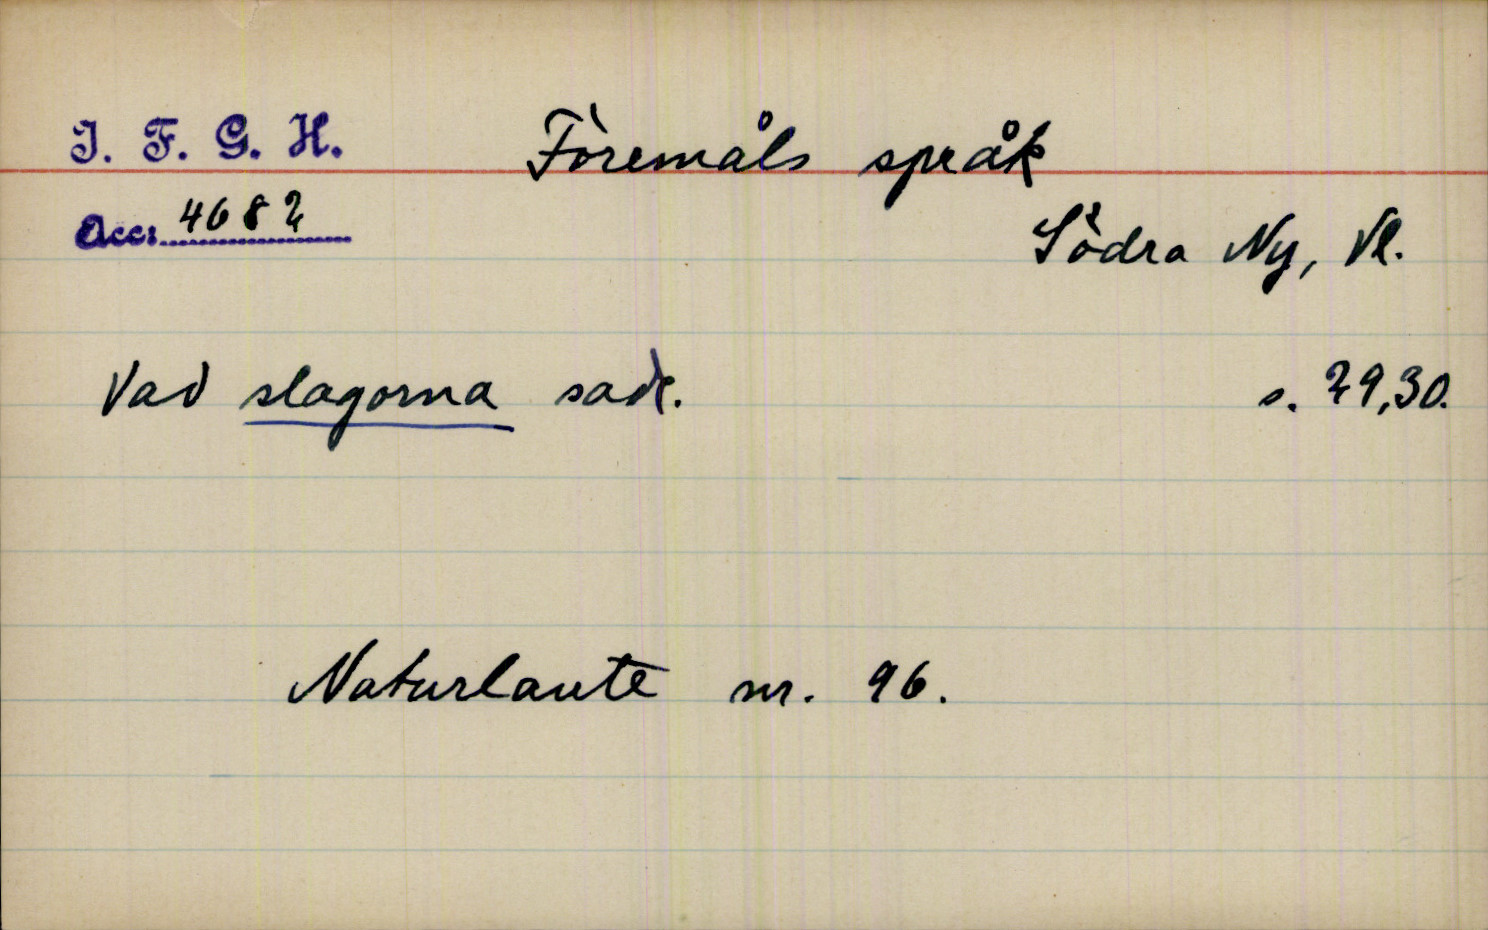 I. F. G. H.
Föremåls språk
Acc: 4682
Södra Ny, Vl.
Vad slagorna sade. s. 29,30.
Naturlaute nr. 96.